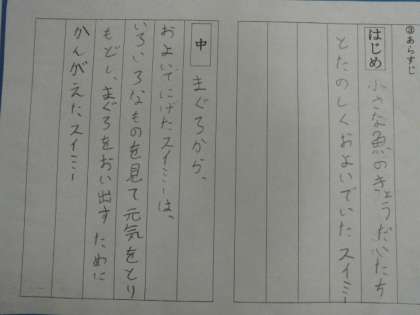 ③あらすじ
はじめ 小さな魚のきょうだいたち
とたのしくおよいでいたスイミー
中 まぐろから、
およいでにげたスイミーは、
いろいろなものを見て元気をとり
もどし、まぐろをおい出すために
かんがえたスイミー